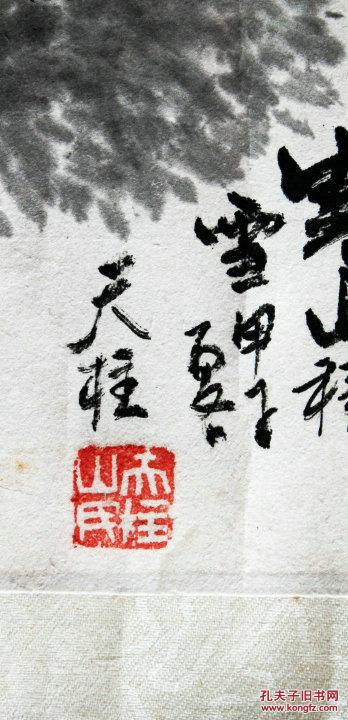 山積
雪甲子
夏
天柱
天柱
山民
孔夫子旧书网
www.kongfz.com